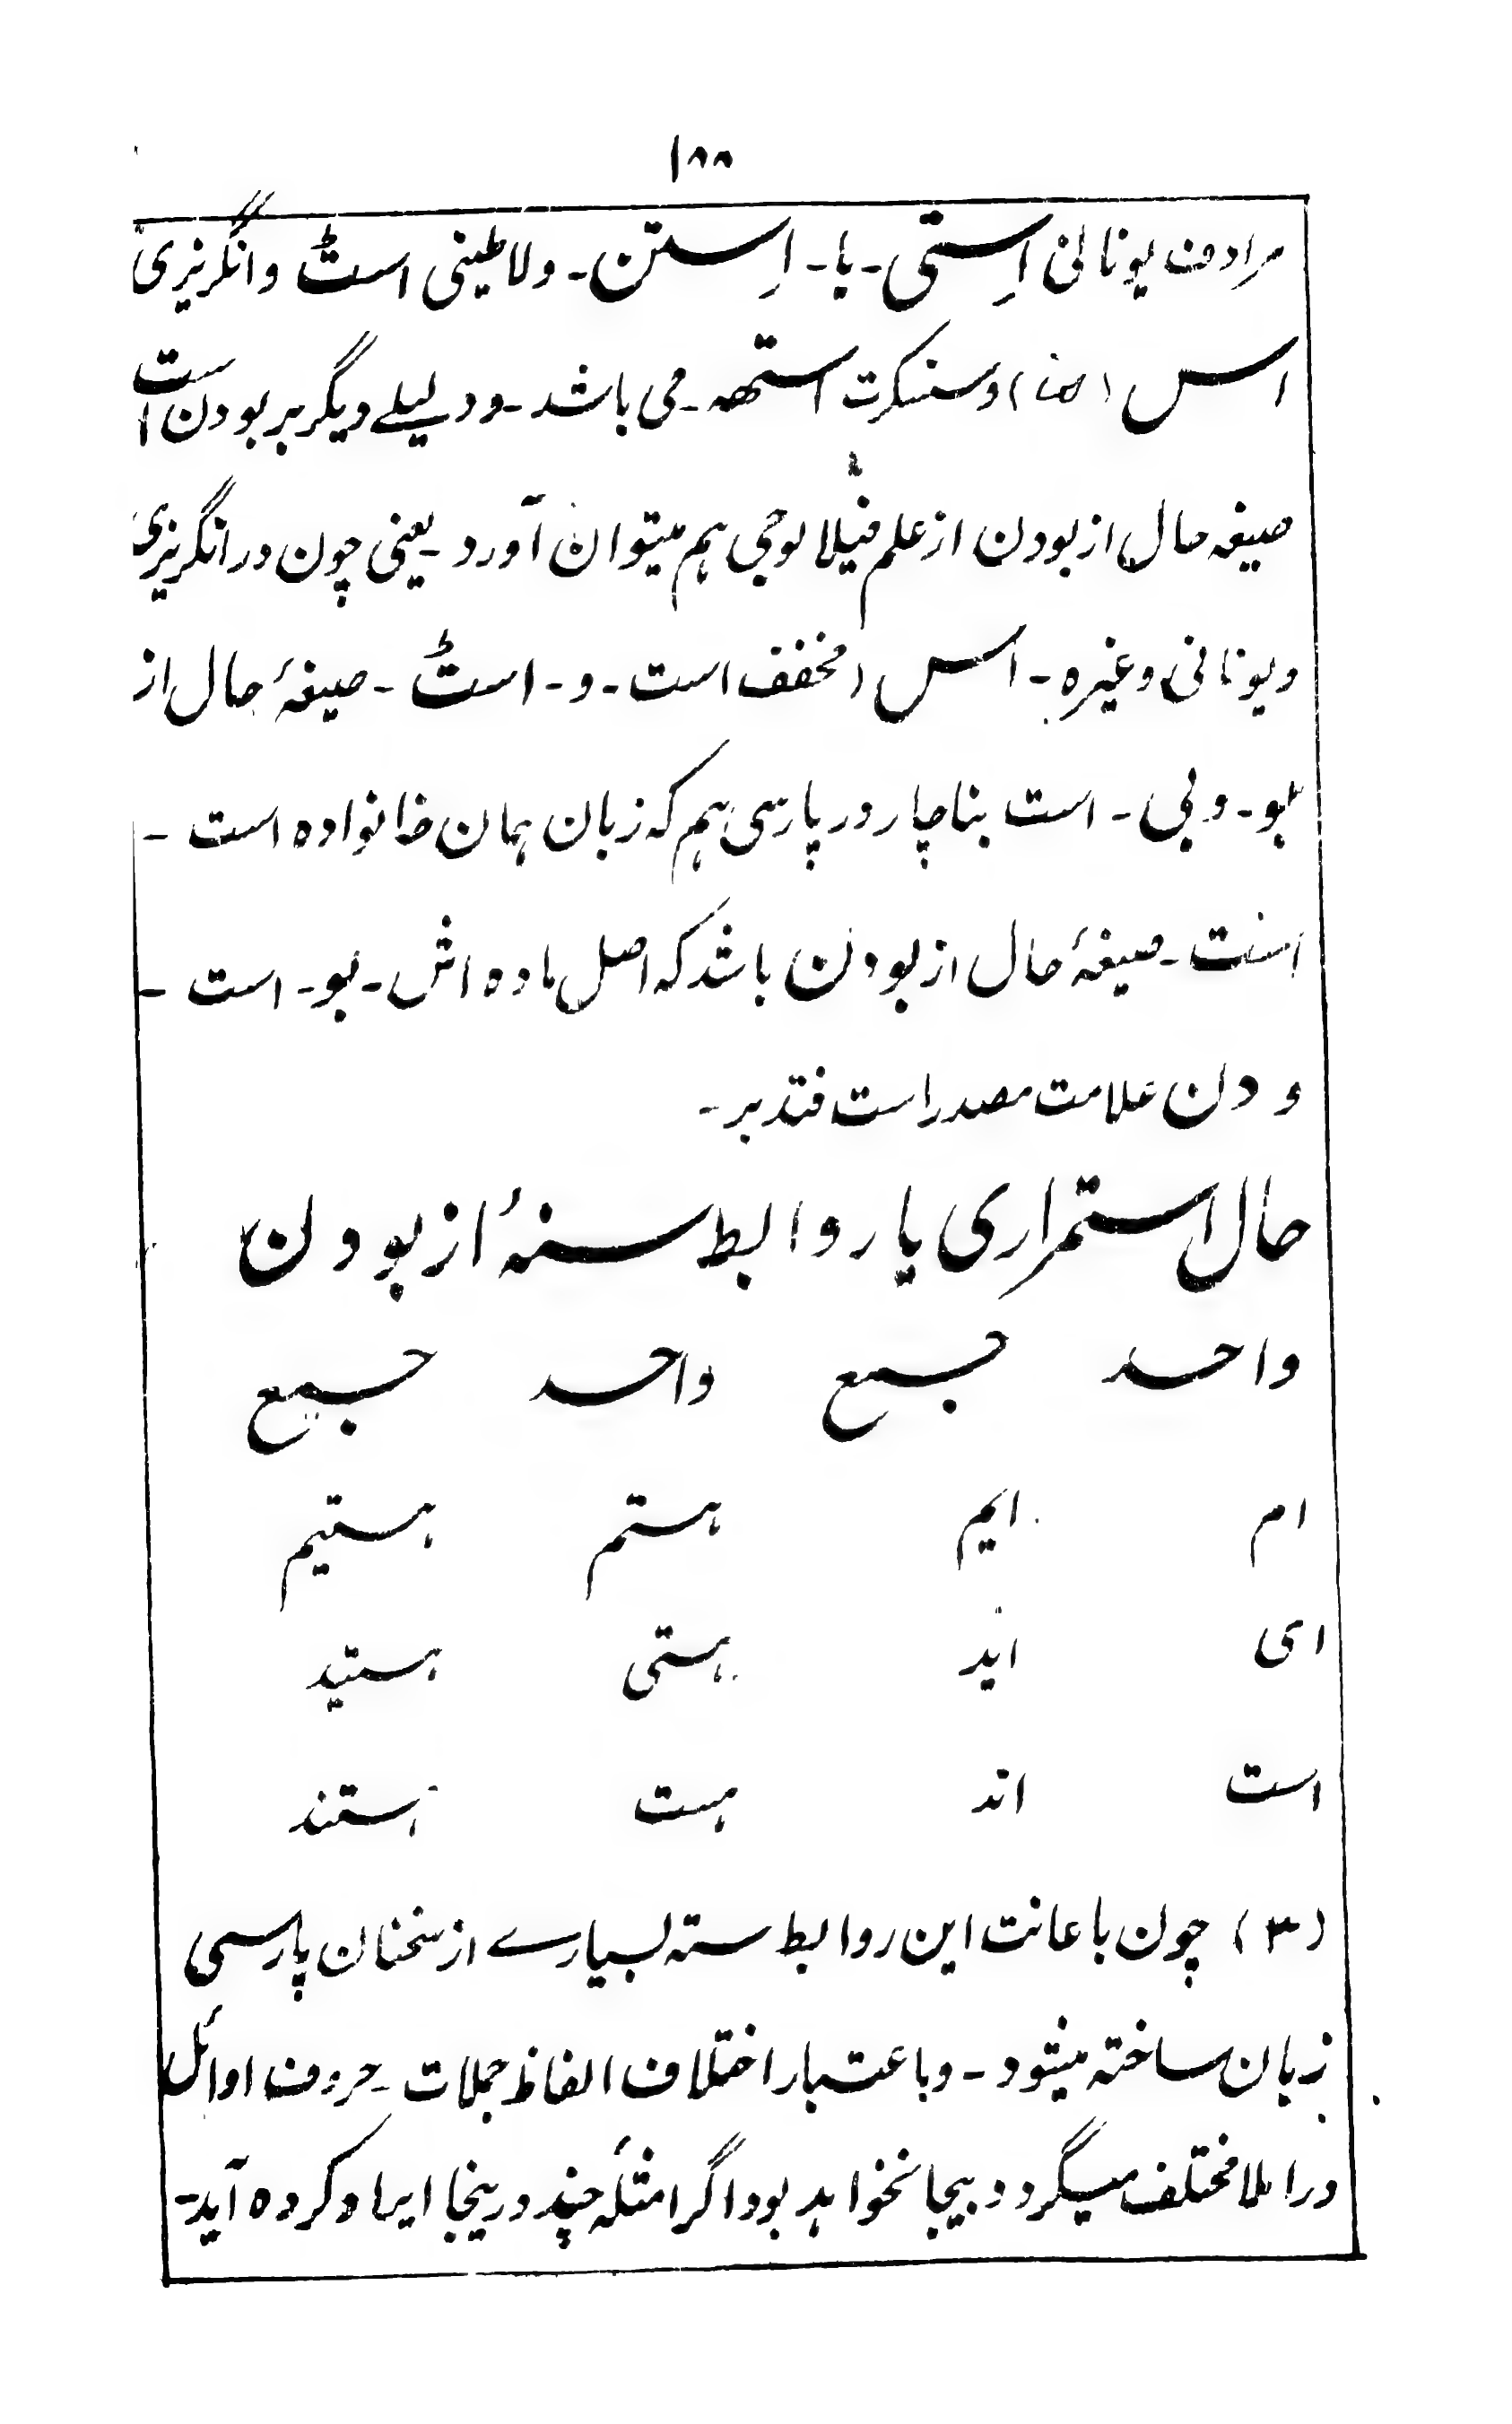 ۱۸۸
مرادف یونانی اِستی - یا - اِستن - ولاطینی اسٹ وانگریزی
اس (is) وسنسکرت استھہ - می باشد - ودلیلے دیگر بر بودن است
صیغہ حال از بودن از علم فیلالوجی ہم میتوان آورد - یعنی چون در انگریزی
ویونانی وغیرہ - اس مخفف است - و - اسٹ - صیغۂ حال از
بو - وبی - است بناچار در پارسی ہم کہ زبان ہمان خانوادہ است -
است - صیغۂ حال از بودن باشد کہ اصل مادہ اش - بو - است -
و دن علامت مصدر است فتدبر -
حال استمراری یا روابط ستہ از بودن
واحد جمع واحد جمع
ام ایم ہستم ہستیم
ای اید ہستی ہستید
است اند ہست ہستند
(۳) چون باعانت این روابط ستہ بسیارے از سخنان پارسی
زبان ساختہ میشود - وباعتبار اختلاف الفاظ جملات - حروف اوائل
در املا مختلف میگردد بیجا نخواہد بود اگر امثلہ چند درینجا ایراد کردہ آید -